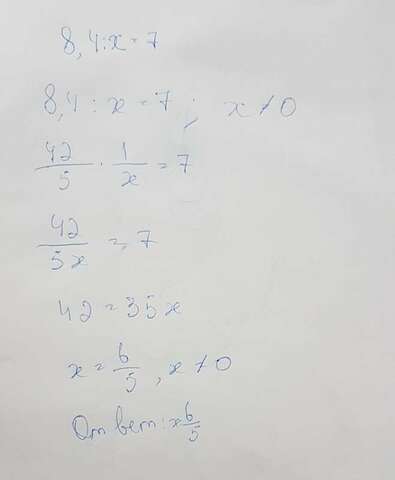 8,4:x=7
8,4 : x = 7 ; x≠0
42/5 · 1/x = 7
42/5x = 7
42 = 35x
x = 6/5 , x≠0
Ответ: x 6/5